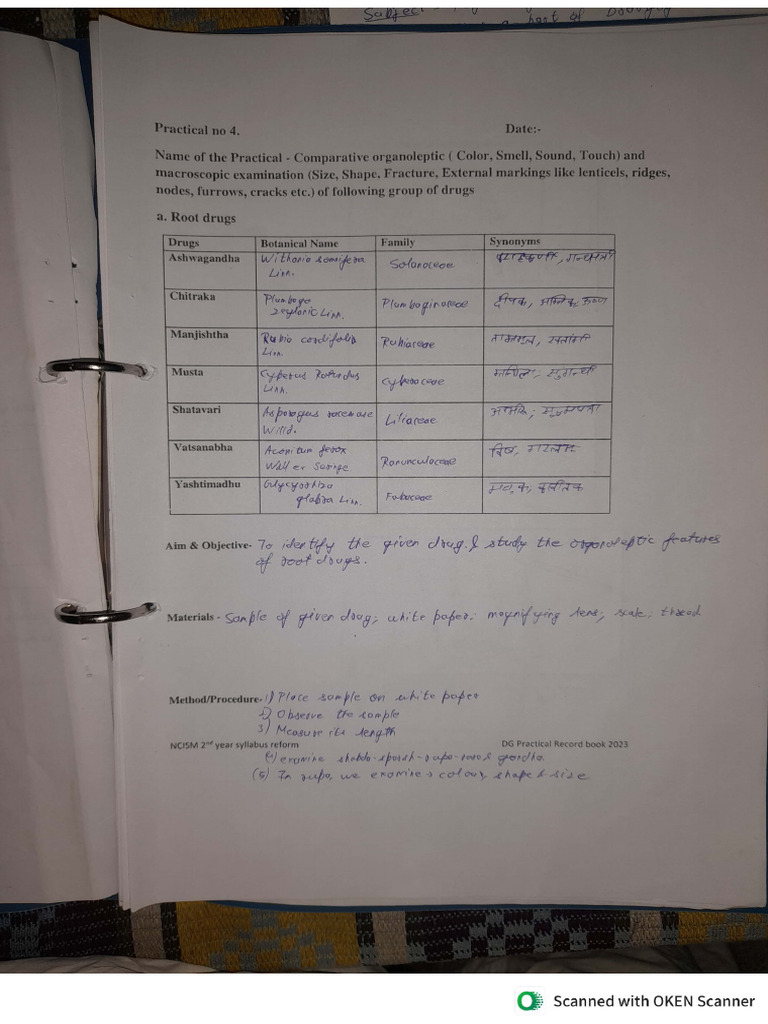 Subjec
part of
Practical no 4.
Date:-
Name of the Practical - Comparative organoleptic ( Color, Smell, Sound, Touch) and
macroscopic examination (Size, Shape, Fracture, External markings like lenticels, ridges,
nodes, furrows, cracks etc.) of following group of drugs
a. Root drugs
Drugs Botanical Name Family Synonyms
Ashwagandha Withania somnifera Solanaceae
Linn.
Chitraka Plumbago Plumbaginaceae दीपक,
zeylanic Linn.
Manjishtha Rubia cordifolia Rubiaceae
Linn.
Musta Cyperus Rotundus Cyperaceae
Linn.
Shatavari Asparagus racemare Liliaceae
Willd.
Vatsanabha Aconitum ferox Ranunculaceae विष,
Wall er Seringe
Yashtimadhu Glycyrrhiza Fabaceae
glabra Linn.
Aim & Objective- To identify the given drug. & study the organoleptic features
of root drugs.
Materials - Sample of given drug; white paper; magnifying lens; scale; thread
Method/Procedure- 1) Place sample on white paper
2) Observe the sample
3) Measure its length
NCISM 2nd year syllabus reform
DG Practical Record book 2023
(4) examine shabda-sparsh-rupa-rasa & gandha.
(5) In rupa, we examine → colour, shape & size
Scanned with OKEN Scanner